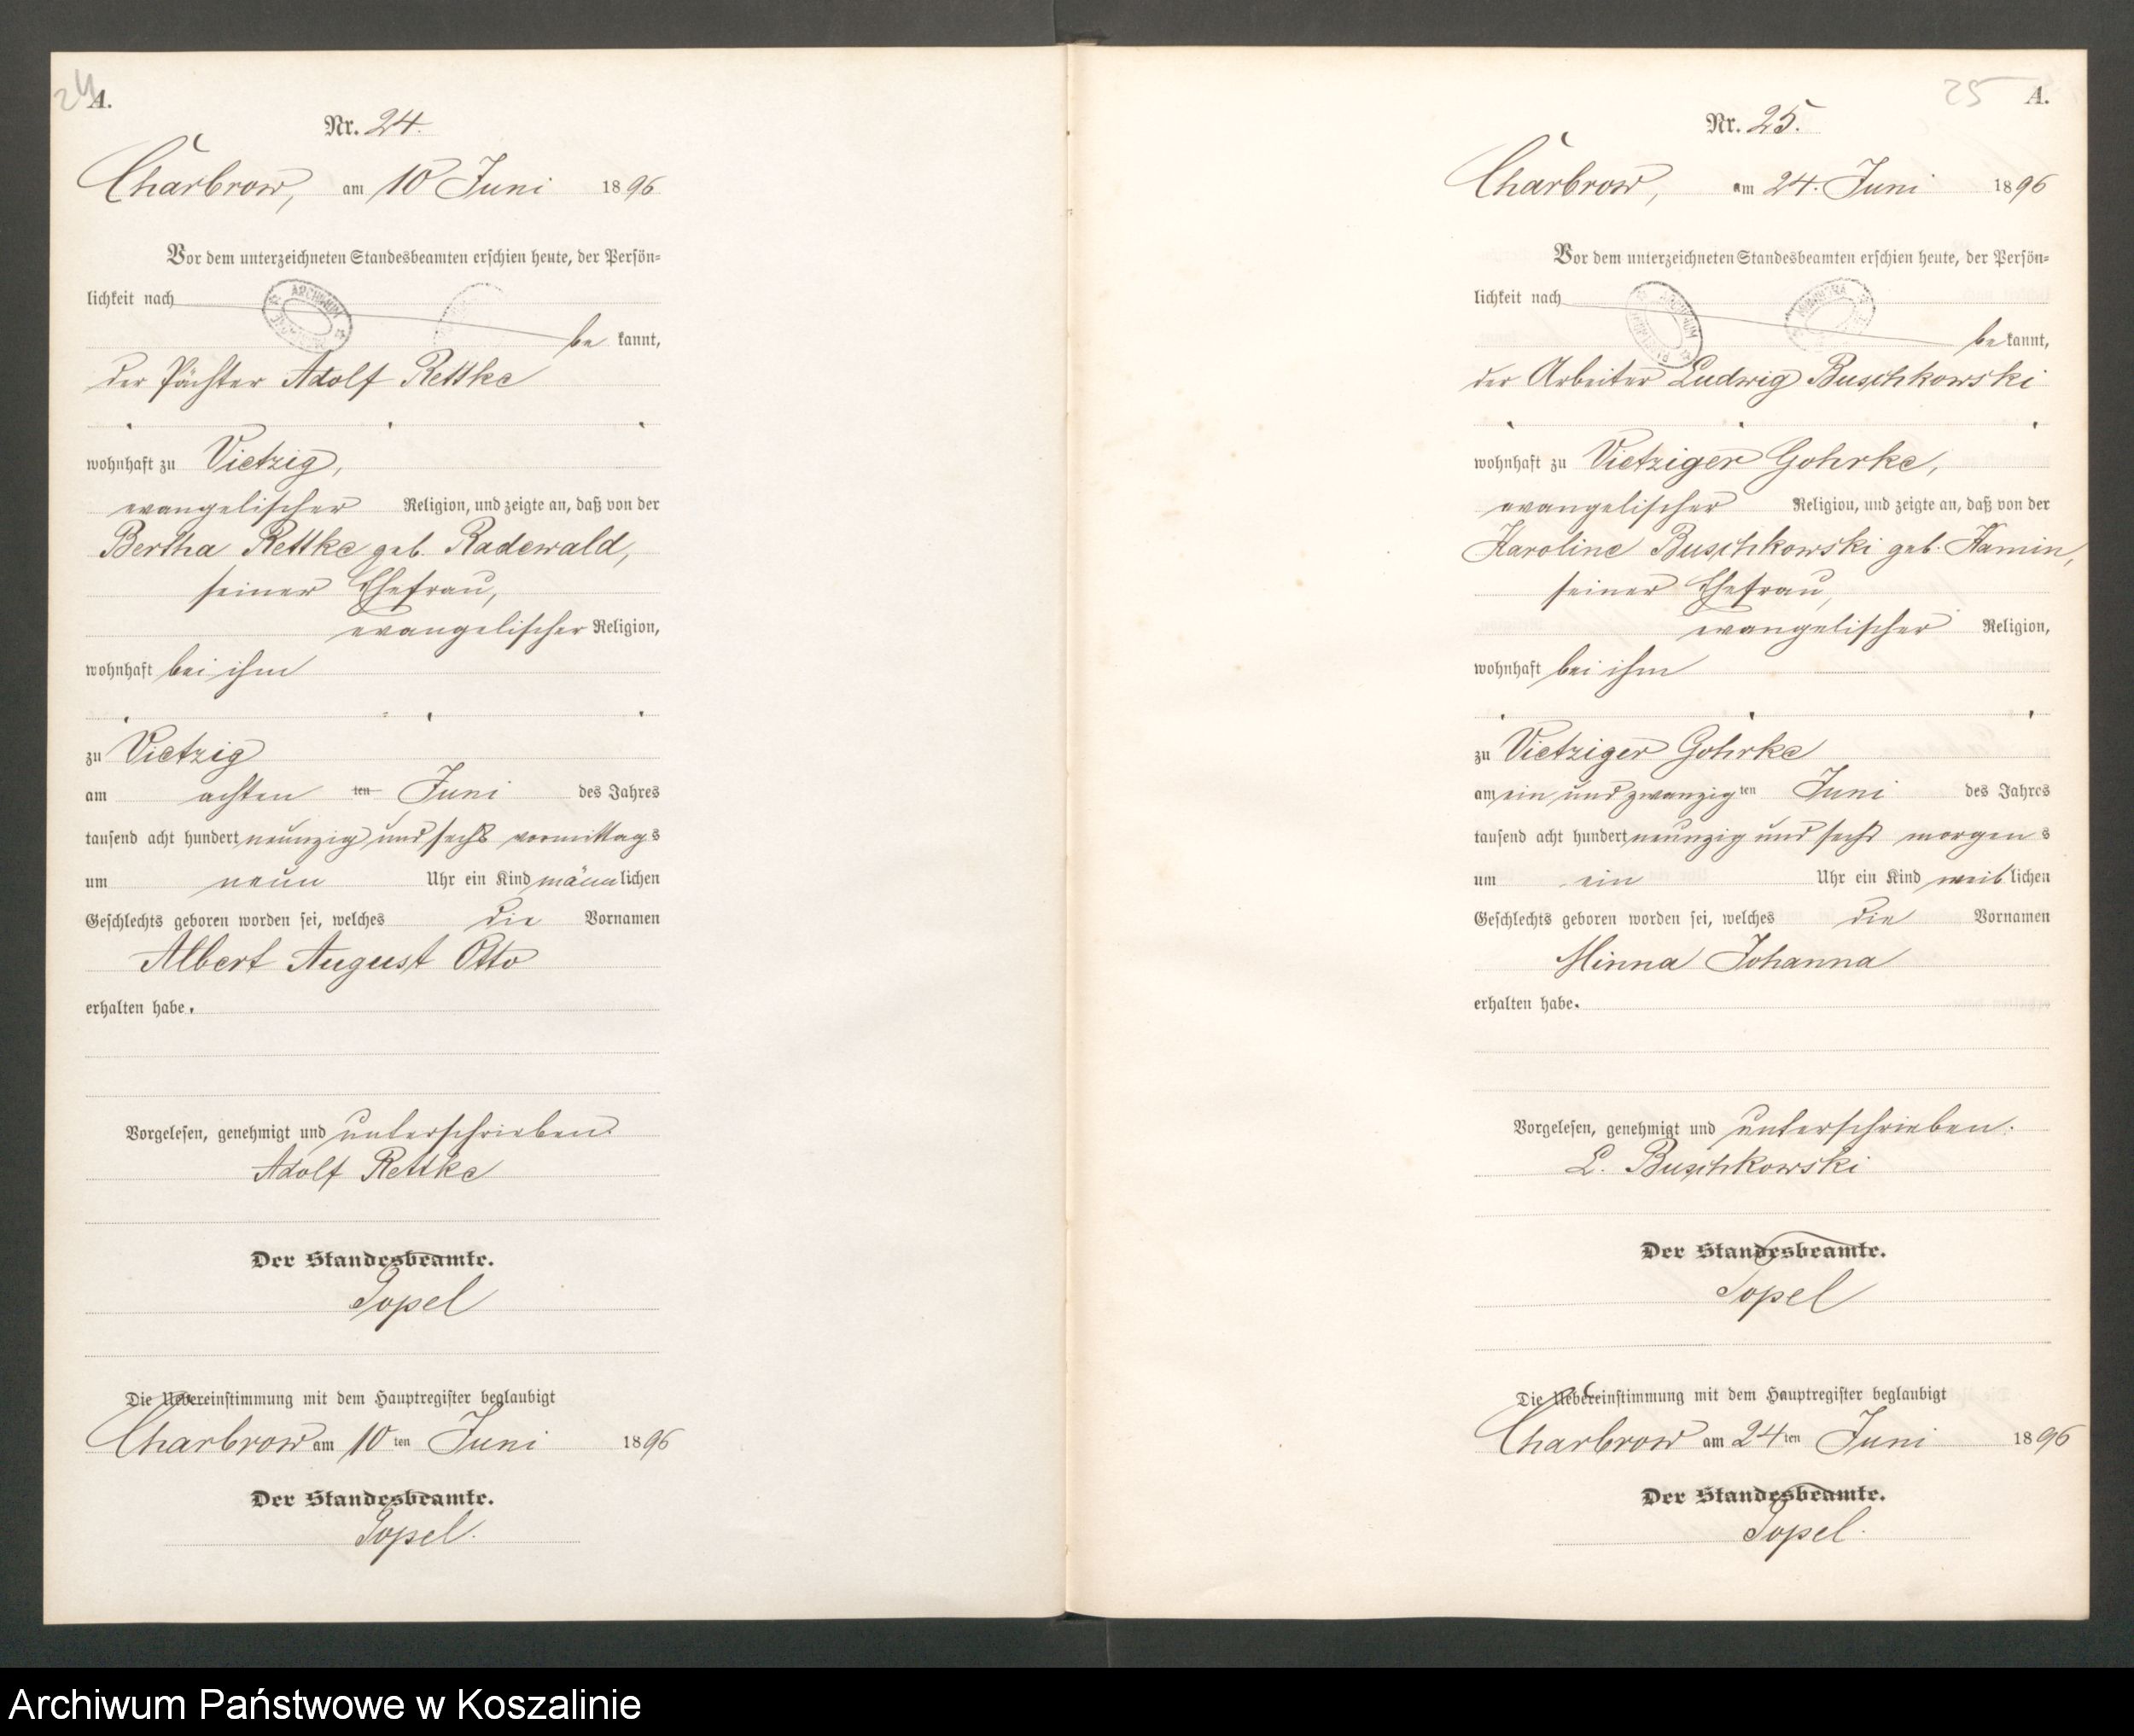 24
A.
Nr. 24.
Charbrow, am 10 Juni 1896
Vor dem unterzeichneten Standesbeamten erschien heute, der Persön=
lichkeit nach
be kannt,
der Pächter Adolf Rettke
wohnhaft zu Vietzig,
evangelischer Religion, und zeigte an, daß von der
Bertha Rettke geb. Radewald,
seiner Ehefrau,
evangelischer Religion,
wohnhaft bei ihm
zu Vietzig
am achten ten Juni des Jahres
tausend acht hundert neunzig und sechs vormittags
um neun Uhr ein Kind männlichen
Geschlechts geboren worden sei, welches die Vornamen
Albert August Otto
erhalten habe.
Vorgelesen, genehmigt und unterschrieben.
Adolf Rettke
Der Standesbeamte.
Popel
Die Uebereinstimmung mit dem Hauptregister beglaubigt
Charbrow am 10 ten Juni 1896
Der Standesbeamte.
Popel.
25
A.
Nr. 25.
Charbrow, am 24. Juni 1896
Vor dem unterzeichneten Standesbeamten erschien heute, der Persön=
lichkeit nach
be kannt,
der Arbeiter Ludwig Buschkowski
wohnhaft zu Vietziger Gohrke,
evangelischer Religion, und zeigte an, daß von der
Karoline Buschkowski geb. Kamin,
seiner Ehefrau,
evangelischer Religion,
wohnhaft bei ihm
zu Vietziger Gohrke
am ein und zwanzig ten Juni des Jahres
tausend acht hundert neunzig und sechs morgens
um ein Uhr ein Kind weiblichen
Geschlechts geboren worden sei, welches die Vornamen
Minna Johanna
erhalten habe.
Vorgelesen, genehmigt und unterschrieben.
L. Buschkowski
Der Standesbeamte.
Popel
Die Uebereinstimmung mit dem Hauptregister beglaubigt
Charbrow am 24 ten Juni 1896
Der Standesbeamte.
Popel.
Archiwum Państwowe w Koszalinie